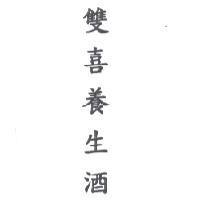 雙喜養生酒